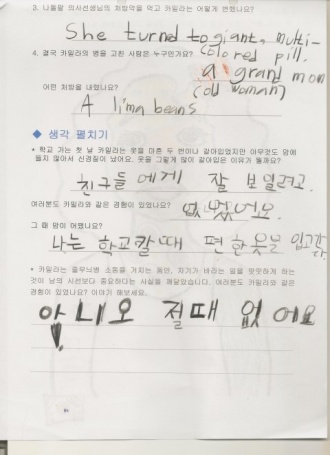 3. 나들팔 의사선생님의 처방약을 먹고 카밀라는 어떻게 변했나요?
She turned to giant, multi-
colored pill.
4. 결국 카밀라의 병을 고친 사람은 누구인가요?
a grand mom
(old woman)
어떤 처방을 내렸나요?
A lima beans
◆ 생각 펼치기
* 학교 가는 첫 날 카밀라는 옷을 마흔 두 번이나 갈아입었지만 아무것도 맘에
들지 않아서 신경질이 났어요. 옷을 그렇게 많이 갈아입은 이유가 뭘까요?
친구들에게 잘 보일려고.
여러분도 카밀라와 같은 경험이 있었나요?
없었어요.
그 때 맘이 어땠나요?
나는 학교갈때 편한옷을 입고간다.
* 카밀라는 줄무늬병 소동을 거치는 동안, 자기가 바라는 일을 떳떳하게 하는
것이 남의 시선보다 중요하다는 사실을 깨달았습니다. 여러분도 카밀라와 같은
경험이 있었나요? 이야기 해보세요.
아니오 절때 없어요
!